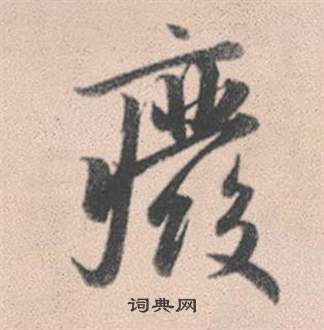 癈
词典网